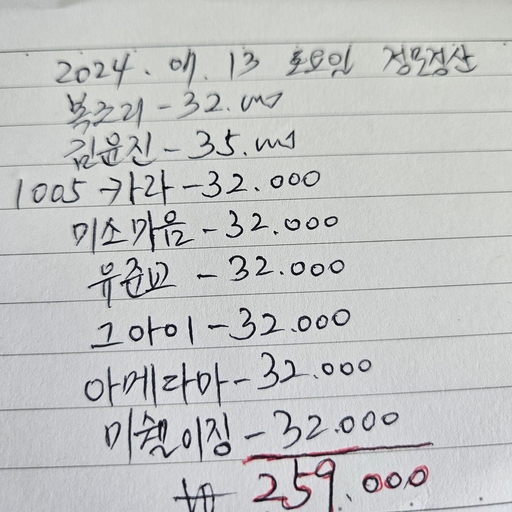 2024. 07. 13 토요일 정모정산
복조리 - 32.000
김윤진 - 35.000
1005 카라 - 32.000
미소마음 - 32.000
유준교 - 32.000
그아이 - 32.000
아메라마 - 32.000
미쉘이징 - 32.000
259.000